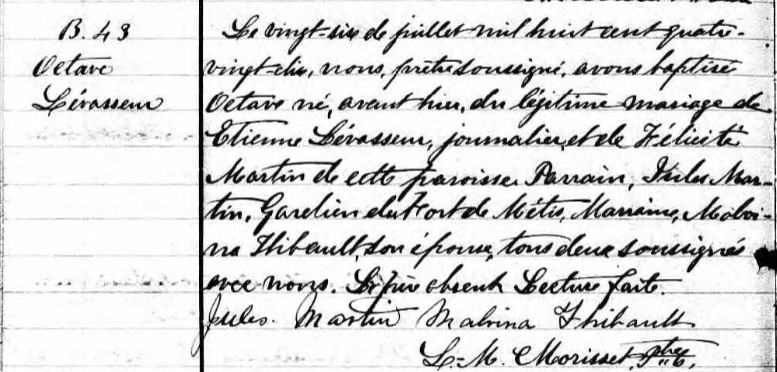 B. 43
Octave
Lévasseur
Le vingt-six de juillet mil huit cent quatre-
vingt-dix, nous, prêtre soussigné, avons baptisé
Octave né, avant hier, du légitime mariage de
Etienne Lévasseur, journalier, et de Félicité
Martin de cette paroisse Parrain, Jules Mar-
tin, Gardien du Fort de Métis, Marraine, Malvi-
na Thibault, son épouse, tous deux soussignés
avec nous. Le père absent. Lecture faite.
Jules Martin Malvina Thibault
L.-M. Morisset, Ptre